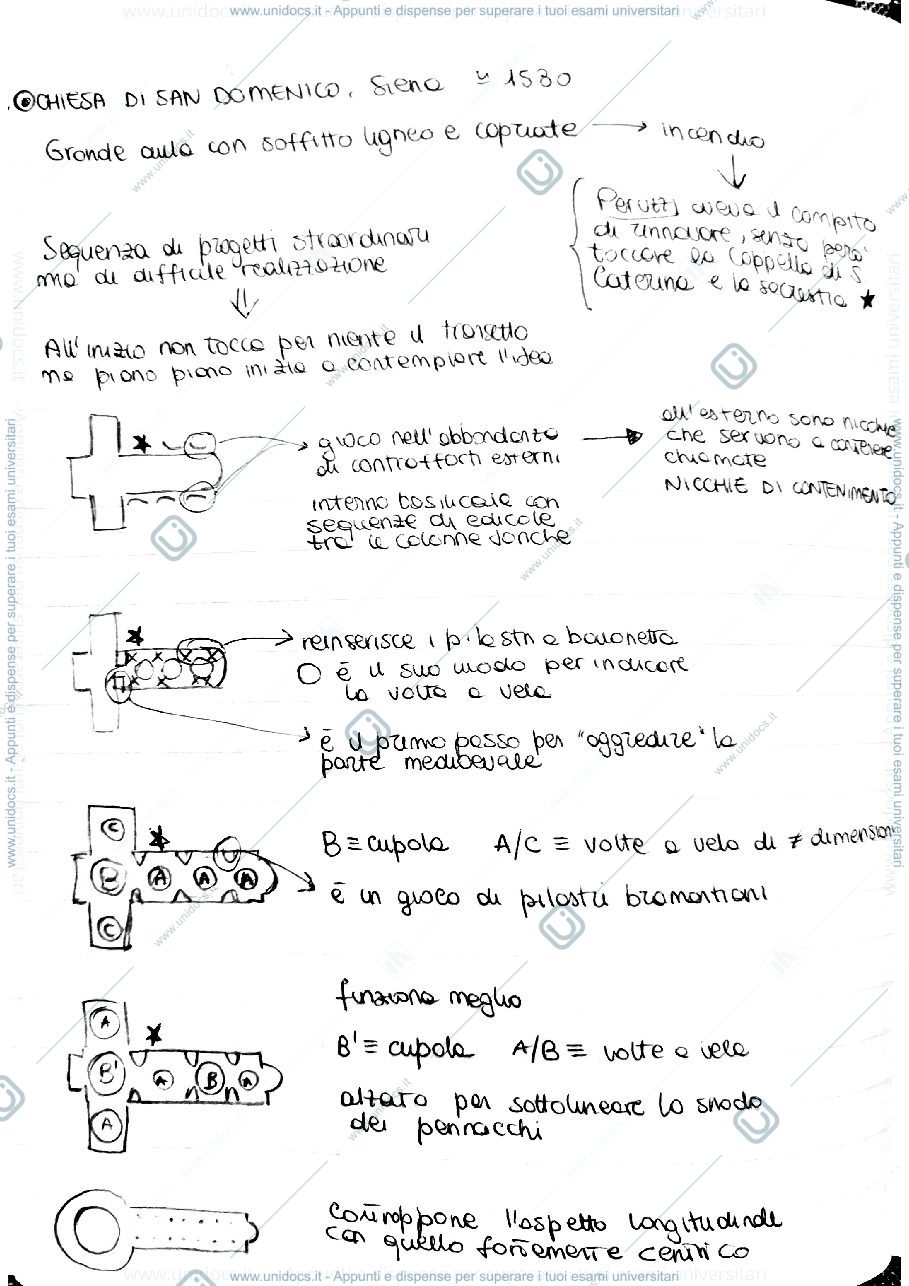 www.unidocs.it - Appunti e dispense per superare i tuoi esami universitari
CHIESA DI SAN DOMENICO, Siena ≃ 1530
Grande aula con soffitto ligneo e capriate → incendio
Peruzzi aveva il compito
di rinnovare, senza però
toccare la Cappella di S
Caterina e la sacrestia ★
Sequenza di progetti straordinari
ma di difficile realizzazione
All'inizio non tocca per niente il transetto
ma piano piano inizia a contemplare l'idea
★
gioco nell'abbondanza
di contrafforti esterni
all'esterno sono nicchie
che servono a contenere
chiamate
NICCHIE DI CONTENIMENTO
interno basilicale con
sequenze di edicole
tra le colonne ioniche
★
reinserisce i pilastri a baionetta
O è il suo modo per indicare
la volta a vela
è il primo passo per "aggredire" la
parte medioevale
★
C
B A A A
C
B ≡ cupola A/C ≡ volte a vela di ≠ dimensioni
è un gioco di pilastri bramantiani
funziona meglio
★
A
B' A B A
A
B' ≡ cupola A/B ≡ volte a vela
alzata per sottolineare lo snodo
dei pennacchi
contrappone l'aspetto longitudinale
con quello fortemente centrico
www.unidocs.it - Appunti e dispense per superare i tuoi esami universitari